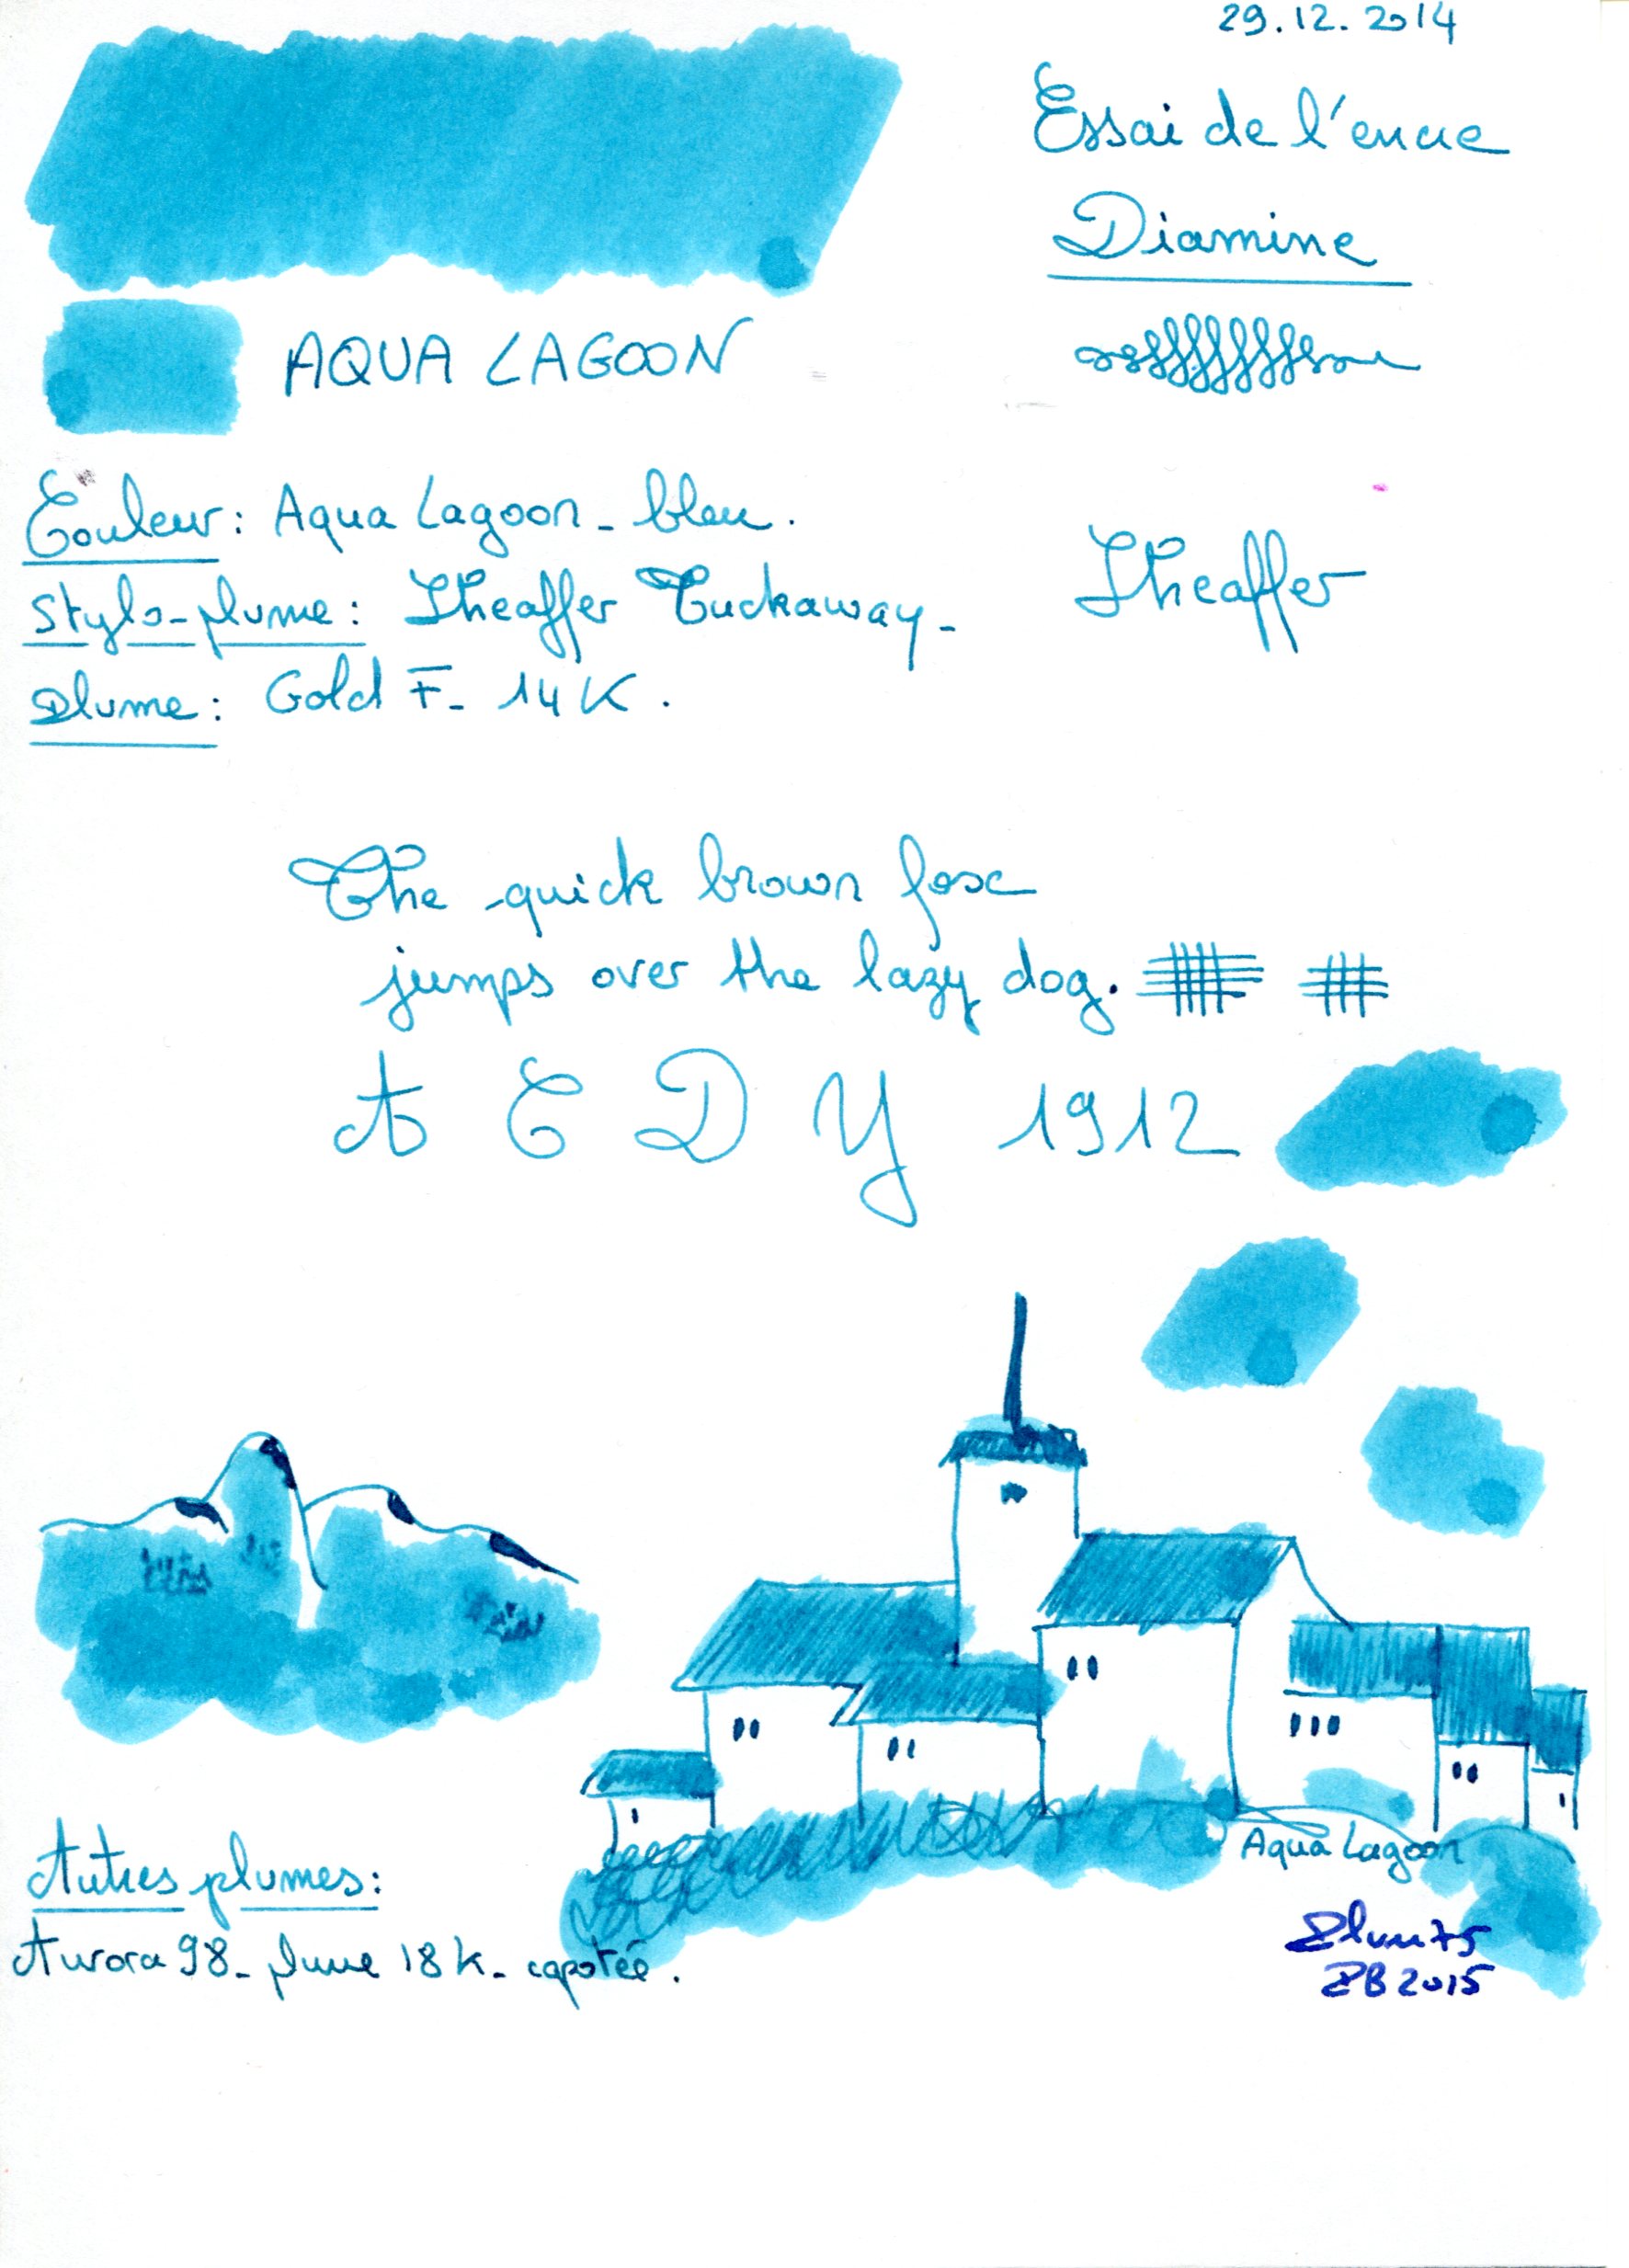 29.12.2014
Essai de l'encre
Diamine
AQUA LAGOON
Couleur: Aqua Lagoon - bleu.
Stylo-plume: Sheaffer Tuckaway -
Sheaffer
plume: Gold F - 14K.
The quick brown fox
jumps over the lazy dog.
A C D Y 1912
Aqua Lagoon
Autres plumes:
Plum75
Aurora 98 - plume 18K - capotée.
PB 2015